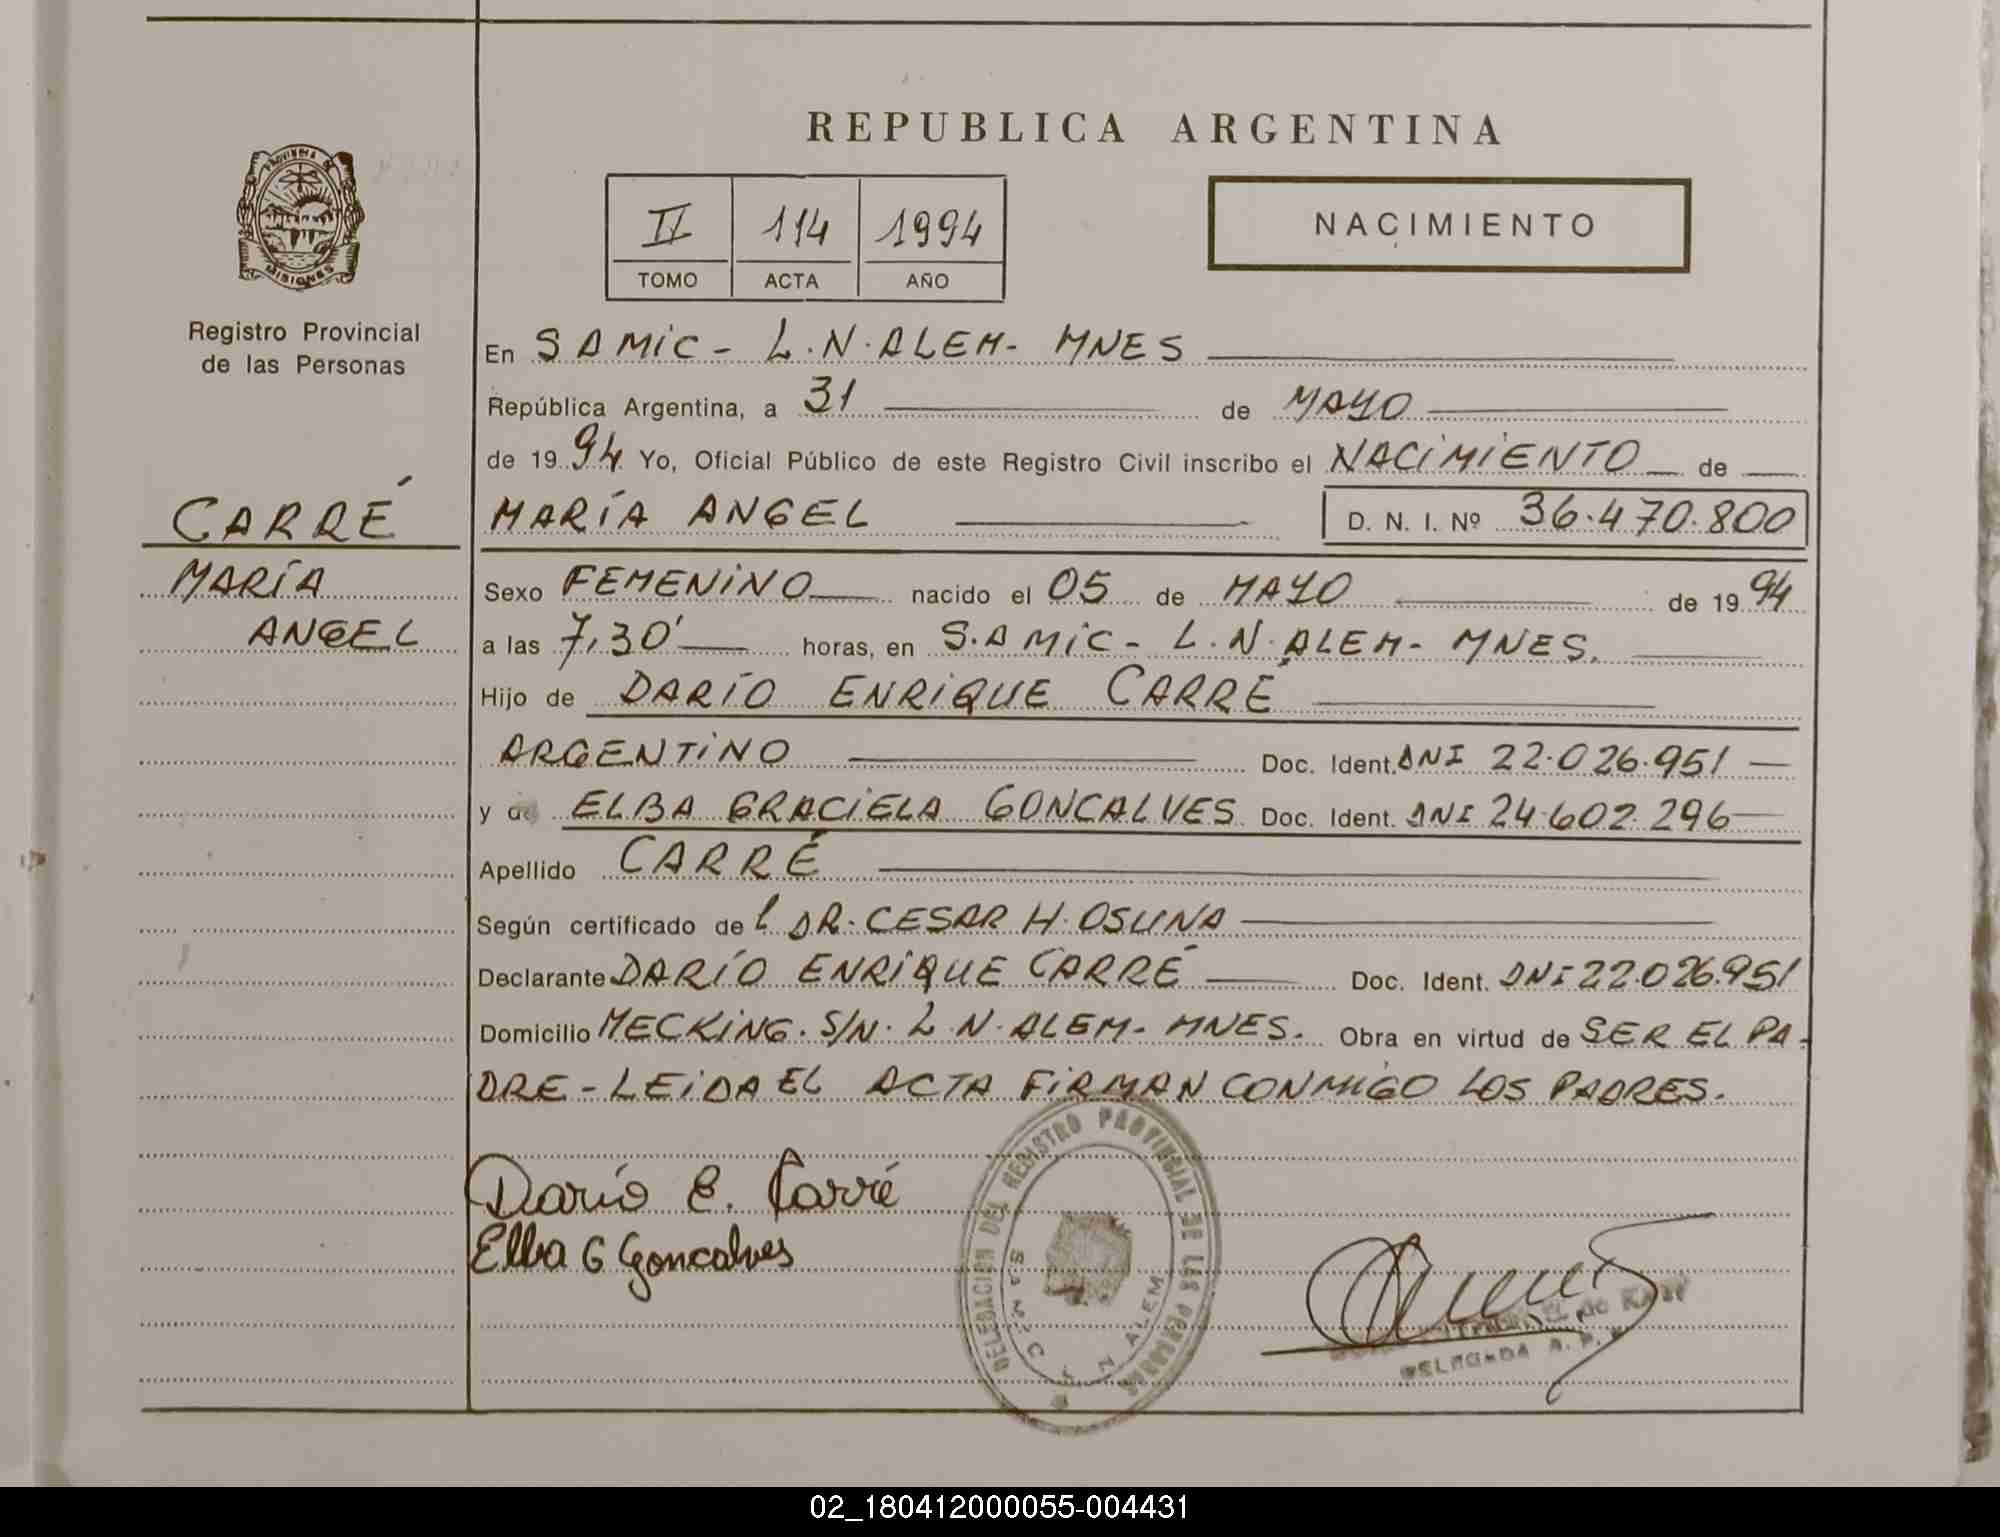 REPUBLICA ARGENTINA
PROVINCIA DE
MISIONES
Registro Provincial
de las Personas
II 114 1994
TOMO ACTA AÑO
NACIMIENTO
En SAMIC - L.N. ALEM - MNES
República Argentina, a 31 de MAYO
de 1994 Yo, Oficial Público de este Registro Civil inscribo el NACIMIENTO de
CARRÉ
MARÍA ANGEL
D. N. I. Nº 36.470.800
MARÍA
ANGEL
Sexo FEMENINO nacido el 05 de MAYO de 1994
a las 7,30' horas, en S.AMIC - L.N. ALEM - MNES.
Hijo de DARÍO ENRIQUE CARRÉ
ARGENTINO Doc. Ident. DNI 22.026.951
y de ELBA GRACIELA GONCALVES Doc. Ident. DNI 24.602.296
Apellido CARRÉ
Según certificado de l DR. CESAR H. OSUNA
Declarante DARÍO ENRIQUE CARRÉ Doc. Ident. DNI 22.026.951
Domicilio MECKING. S/N. L.N. ALEM - MNES. Obra en virtud de SER EL PA-
DRE - LEIDA EL ACTA FIRMAN CONMIGO LOS PADRES.
Darío E. Carré
Elba G Goncalves
DELEGACION DEL REGISTRO PROVINCIAL DE LAS PERSONAS
SAMIC L N ALEM
DELEGADA
02_180412000055-004431